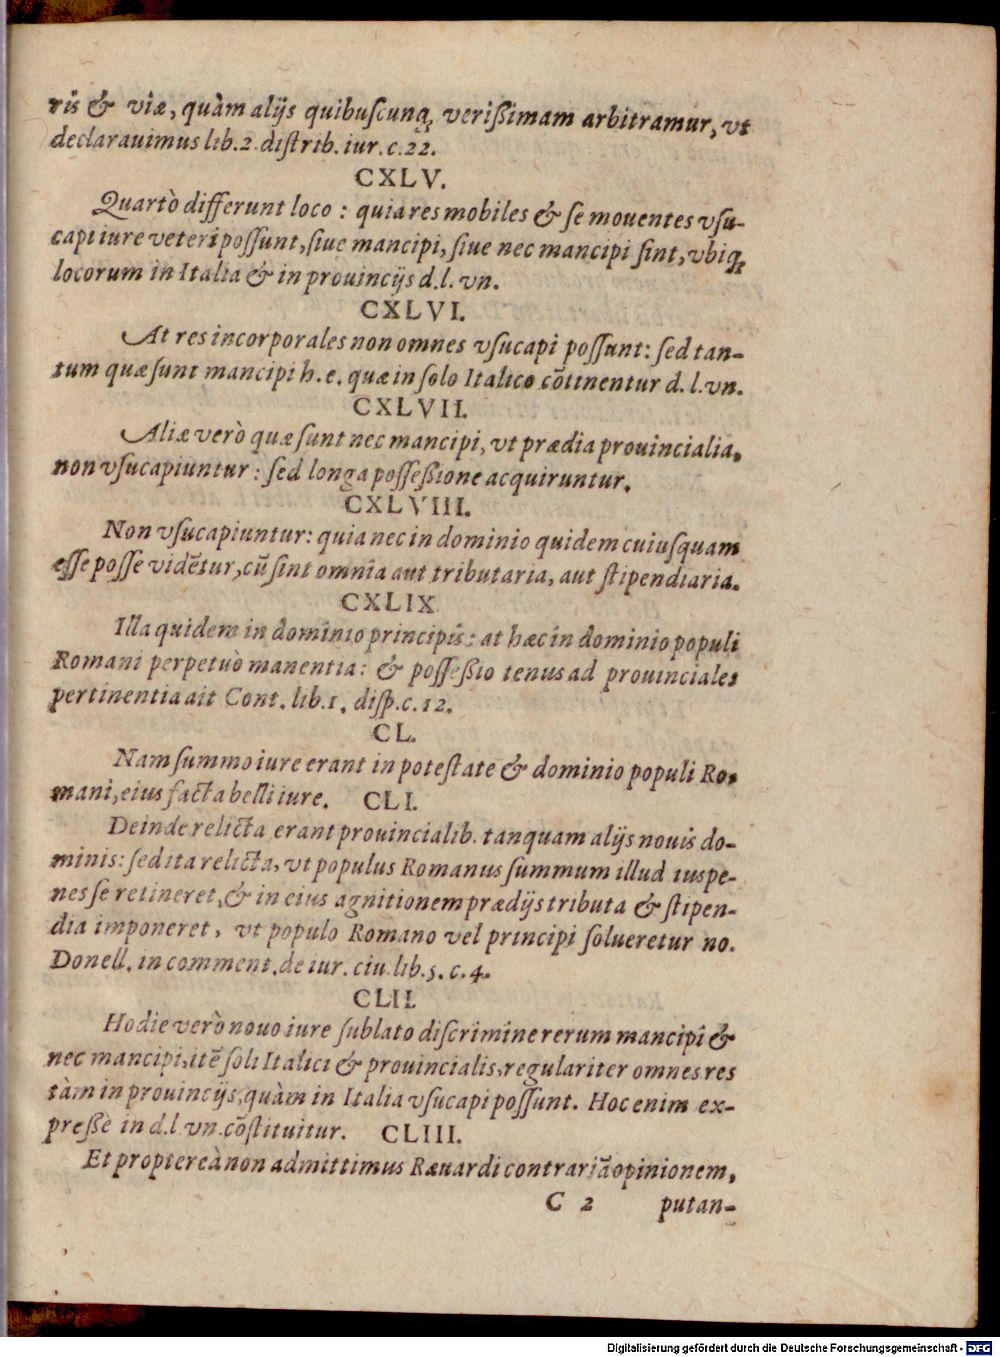 ris & viæ, quàm alijs quibuſcunq; veriſſimam arbitramur, vt
declarauimus lib. 2. diſtrib. iur. c. 22.
CXLV.
Quartò differunt loco: quia res mobiles & ſe mouentes vſu-
capi iure veteri poſſunt, ſiue mancipi, ſiue nec mancipi ſint, vbiq;
locorum in Italia & in prouincijs d. l. vn.
CXLVI.
At res incorporales non omnes vſucapi poſſunt: ſed tan-
tum quæ ſunt mancipi h. e. quæ in ſolo Italico cōtinentur d. l. vn.
CXLVII.
Aliæ verò quæ ſunt nec mancipi, vt prædia prouincialia,
non vſucapiuntur: ſed longa poſſeßione acquiruntur.
CXLVIII.
Non vſucapiuntur: quia nec in dominio quidem cuiuſquam
eſſe poſſe vidētur, cū ſint omnia aut tributaria, aut ſtipendiaria.
CXLIX
Illa quidem in dominio principis: at hæc in dominio populi
Romani perpetuò manentia: & poſſeßio tenus ad prouinciales
pertinentia ait Cont. lib. 1. diſp. c. 12.
CL.
Nam ſummo iure erant in poteſtate & dominio populi Ro-
mani, eius facta belli iure. CLI.
Deinde relicta erant prouincialib. tanquam alijs nouis do-
minis: ſed ita relicta, vt populus Romanus ſummum illud ius pe-
nes ſe retineret, & in eius agnitionem prædijs tributa & ſtipen-
dia imponeret, vt populo Romano vel principi ſolueretur no.
Donell. in comment. de iur. ciu. lib. 5. c. 4.
CLII.
Hodie verò nouo iure ſublato diſcrimine rerum mancipi &
nec mancipi, itē ſoli Italici & prouincialis, regulariter omnes res
tàm in prouincijs, quàm in Italia vſucapi poſſunt. Hoc enim ex-
preßè in d. l. vn. cōſtituitur. CLIII.
Et proptereà non admittimus Ræuardi contrariā opinionem,
C 2 putan-
Digitalisierung gefördert durch die Deutsche Forschungsgemeinschaft - DFG